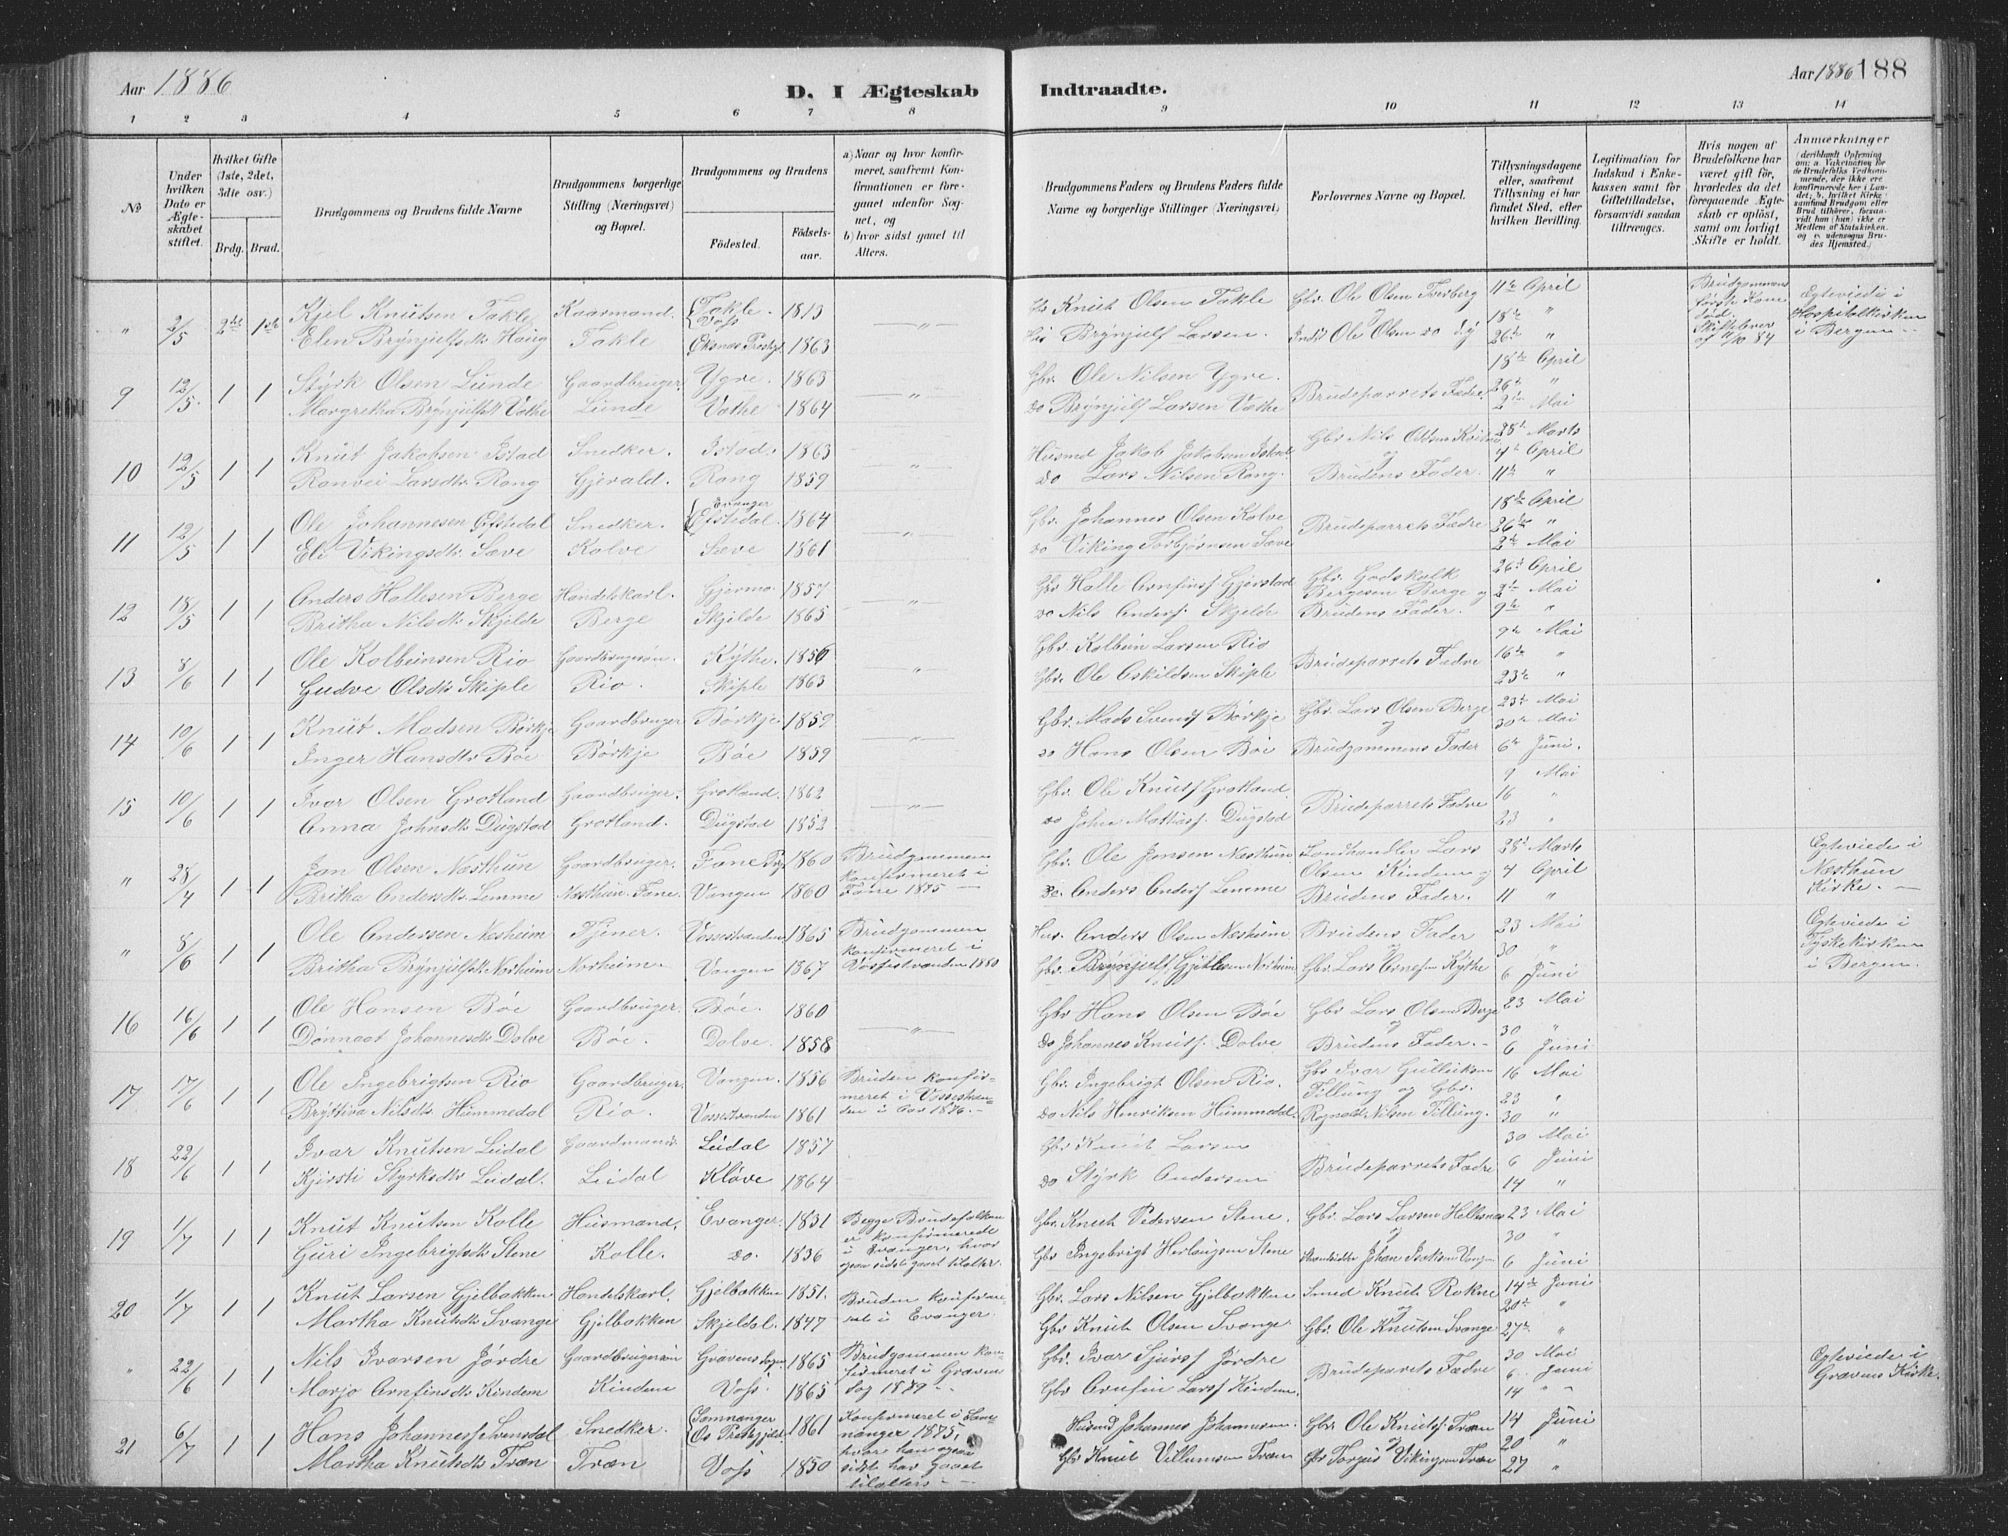 Aar 1886
D. I Ægteskab Indtraadte.
Aar 1886 188
1 2 3 4 5 6 7 8 9 10 11 12 13 14
No
Under hvilken Dato er Ægteskabet stiftet.
Hvilket Gifte (1ste, 2det, 3dte osv.)
Brdg. Brud.
Brudgommens og Brudens fulde Navne
Brudgommens borgerlige Stilling (Næringsvei) og Bopæl.
Brudgommens og Brudens
Födested. Födselsaar.
a) Naar og hvor konfirmeret, saafremt Konfirmationen er foregaaet udenfor Sognet, og
b) hvor sidst gaaet til Alters.
Brudgommens Faders og Brudens Faders fulde Navne og borgerlige Stillinger (Næringsvei)
Forlovernes Navne og Bopæl.
Tillysningsdagene eller, saafremt Tillysning ei har fundet Sted, efter hvilken Bevilling.
Legitimation for Indskud i Enkekassen samt for Giftetilladelse, forsaavidt saadan tiltrænges.
Hvis nogen af Brudefolkene har været gift för, hvorledes da det foregaaende Ægteskab er oplöst, samt om lovligt Skifte er holdt.
Anmærkninger
" 2/5 2det 1ste Kjel Knutsen Takle Kaarmand. Takle. Voss 1813 — " — Knut Olsen Takle Gbr. Ole Olsen Tverberg 11te April Brudgommens første Kone død. Egteviede i Hospitalkirken i Bergen
Elen Brynjulfsdtr Haug Takle 1863 Brynjulf Larsen Ole Olsen 18de " 26de "
9 12/5 1 1 Styrk Olsen Lunde Gaardbruger. Ygre. 1863 — " — Gbr. Ole Nilsen Ygre. Brudeparrets Fædre. 18de April
Margretha Brynjulfsdtr Væthe Lunde Væthe 1864 do Brynjulf Larsen Væthe 26de " 2den Mai
10 12/5 1 1 Knut Jakobsen Istad Snedker. Istad. 1863 — " — Husmd Jakob Jakobsen Istad Gbr Nils og 28de Marts 4de April
Ranvei Larsdtr Rong Gjerald. Rong 1859 do Lars Nilsen Rong. Brudens Fader. 11te "
11 12/5 1 1 Ole Johannesen Efstedal Snedker. Evanger Efstedal 1864 — " — Gbr. Johannes Olsen Kolve Brudeparrets Fædre 18de April
Eli Vikingsdtr Sæve Kolve Sæve 1861 do Viking Torbjørnsen Sæve 26de " 2den Mai
12 18/5 1 1 Anders Hallesen Berge Handelskarl. Gjermo 1857 — " — Gbr Halle Arnfinsf. Gjerstad Gbr. Godskalk Bergesen Berge og 26de April 2den Mai
Britha Nilsdtr Skjelde Berge Skjilde 1865 do Nils Andersf Skjelde Brudens Fader. 9de "
13 8/6 1 1 Ole Kolbeinsen Rio Gaardbrugersøn. Kythe 1856 — " — Gbr. Kolbein Larsen Rio Brudeparrets Fædre 9de Mai
Gudve Olsdtr Skiple Rio. Skiple 1863 Gbr. Ole Eskildsen Skiple 16de " 23de "
14 10/6 1 1 Knut Madsen Børkje Gaardbruger Børkje 1859 — " — Gbr. Mads Svensf Børkje Gbr. Lars Olsen Berge og 23de Mai 30te Mai
Inger Hansdtr Böe Børkje Böe 1859 do Hans Olsen Böe Brudgommens Fader 6te Juni.
15 10/6 1 1 Ivar Olsen Grotland Gaardbruger. Grotland. 1862 — " — Gbr. Ole Knutsf Grotland. Brudeparrets Fædre 9 Mai
Anna Johnsdtr Dugstad Grotland. Dugstad 1852 do John Mathiasf. Dugstad 16 " 23 "
" 28/4 1 1 Jan Olsen Næsthun Gaardbruger. Fane 1860 Brudgommen konfirmeret i Fane 1875 — Gbr. Ole Jonsen Næsthun Landhandler Lars Olsen Kindem og 28de Marts 4 April Egteviede i Næsthun Kirke. —
Britha Andersdtr Lemme Næsthun Fane. Vangen 1860 do. Anders Andersf Lemme Brudens Fader. 11 "
" 8/6 1 1 Ole Andersen Næsheim Tjener. Vossestranden 1865 Brudgommen konfirmeret i Vossestranden 1880 Hus. Anders Olsen Næsheim Brudens Fader 23 Mai Egteviede i Tyskekirken i Bergen.
Britha Brynjulfsdtr Norheim Norheim. Vangen 1867 Gbr. Brynjulf Gjitlesen Norheim Gbr Lars Kythe 30 " 6 Juni
16 16/6 1 1 Ole Hansen Böe Gaardbruger. Böe. 1860 — " — Gbr Hans Olsen Böe Gbr Lars Olsen Berge og 23 Mai
Dønnaat Johannesdtr Dolve Böe. Dolve. 1858 do Johannes Knutsf. Dolve Brudens Fader. – 30 " 6 Juni
17 17/6 1 1 Ole Ingebrigtsen Rio Gaardbruger. Vangen. 1856 Bruden konfirmeret i Vossestranden i Aar 1876. – Gbr. Ingebrigt Olsen Rio. Gbr Ivar Gulleiksen Tillung og Gbr. 16 Mai
Bryttiva Nilsdtr Hummedal Rio. Vossestranden 1861 do Nils Henriksen Hummedal Rognald Nilsen Tillung. 23 " 30 "
18 22/6 1 1 Ivar Knutsen Leidal Gaardmand Leidal 1857 Gbr Knut Larsen Brudeparrets Fædre 30 Mai
Kjirsti Styrksdtr Leidal. Leidal Kløve 1864 do Styrk Andersen 6 Juni 14 "
19 1/7 1 1 Knut Knutsen Kolle Husmand. Evanger. 1831 Begge Brudefolken er konfirmerede i Evanger, hvor ogsaa sidst gaaet tilalter. Gbr. Knut Pedersen Stene. Gbr. Lars Larsen Hellesnæs og 23 Mai
Guri Ingebrigtsdtr Stene Kolle. do. 1836 Gbr. Ingebrigt Herlaugsen Stene Strandsidder Johan Isaksen Vangen 30 " 6 Juni
20 1/7 1 1 Knut Larsen Gjelbakken Handelskarl. Gjelbakken 1851. Bruden konfirmeret i Evanger. Gbr. Lars Nilsen Gjelbakken Smed Knut Rokne og 14de Juni
Martha Knutsdtr Svange Gjelbakken Skjeldal. 1847 Gbr Knut Olsen Svange Gbr. Ole Knutsen Svange 20de " 27de "
" 22/6 1 1 Nils Ivarsen Jørdre Gaardbrugersøn Gravens Sogn 1865 Brudgommen konfirmeret i Gravens Sog 1879 – Gbr. Ivar Sjursf Jørdre Brudeparrets Fædre 30 Mai Egteviede i Gravens Kirke.
Marjo Arnfinsdtr Kindem Kindem Voss. 1865 Gbr Arnfin Larsf Kindem. 6 Juni 14 "
21 6/7 1 1 Hans Johannesf Svensdal Snedker. Samnanger Os Præstgjeld. 1861 Konfirmeret i Samnanger 1875, hvor han ogsaa sidst har gaaet tilalters – Husmd Johannes Johannesen. Gbr. Ole Knutsf. Træn og 14 Juni
Martha Knutsdtr Træn Træn Voss 1850 Gbr Knut Villumsen Træn Gbr Torgeis Vikingsen Træn 20 " 27 "